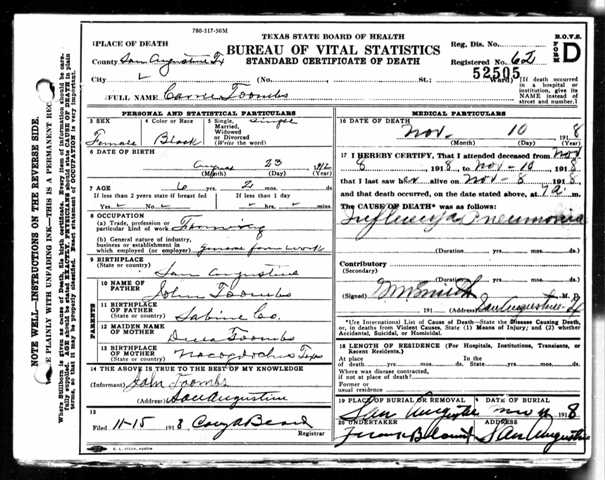 780-317-50M
TEXAS STATE BOARD OF HEALTH
BUREAU OF VITAL STATISTICS
STANDARD CERTIFICATE OF DEATH
B.O.V.S.
FORM D
Reg. Dis. No.
Registered No. 62
52505
PLACE OF DEATH
County San Augustine Tx
City (No. St.; Ward)
[If death occurred in a hospital or institution, give its NAME instead of street and number.]
FULL NAME Carrie Toombs
PERSONAL AND STATISTICAL PARTICULARS
3 SEX Female
4 Color or Race Black
5 Single, Married, Widowed or Divorced (Write the word) Single
6 DATE OF BIRTH
August 23 1912
(Month) (Day)
7 AGE 6 2
If less than 2 years state if breast fed
If less than 1 day
Yes No hrs. min.
8 OCCUPATION
(a) Trade, profession or particular kind of work Farming
(b) General nature of industry, business or establishment in which employed (or employer) general farm work
9 BIRTHPLACE
(State or country) San Augustine
PARENTS
10 NAME OF FATHER John Toombs
11 BIRTHPLACE OF FATHER
(State or country) Sabine Co.
12 MAIDEN NAME OF MOTHER Toombs
13 BIRTHPLACE OF MOTHER
(State or country) Nacogdoches Texas
14 THE ABOVE IS TRUE TO THE BEST OF MY KNOWLEDGE
(Informant) John Toombs
(Address) San Augustine
15
Filed 11-15 1918 Beard
Registrar
MEDICAL PARTICULARS
16 DATE OF DEATH
Nov. 10 1918
(Month) (Day)
17 I HEREBY CERTIFY, That I attended deceased from Nov
8 1918 to Nov-10 1918
that I last saw her alive on Nov-8 1918
and that death occurred, on the date stated above, at 7 a m.
The CAUSE OF DEATH* was as follows:
Influenza Pneumonia
(Duration) yrs. mos. ds.
Contributory
(Secondary)
(Duration) yrs. mos. ds.
(Signed) M. D.
191 (Address) San Augustine Tx
*Use International List of Cause of Death—State the Disease Causing Death, or, in deaths from Violent Causes, State (1) Means of Injury; and (2) whether Accidental, Suicidal, or Homicidal.
18 LENGTH OF RESIDENCE (For Hospitals, Institutions, Transients, or Recent Residents.)
At place of death yrs. mos. ds. In the State yrs. mos. ds.
Where was disease contracted, if not at place of death?
Former or usual residence
19 PLACE OF BURIAL OR REMOVAL San Augustine
DATE OF BURIAL Nov 11 1918
20 UNDERTAKER Frank Blount
ADDRESS San Augustine
NOTE WELL—INSTRUCTIONS ON THE REVERSE SIDE.
E PLAINLY WITH UNFADING INK—THIS IS A PERMANENT REC